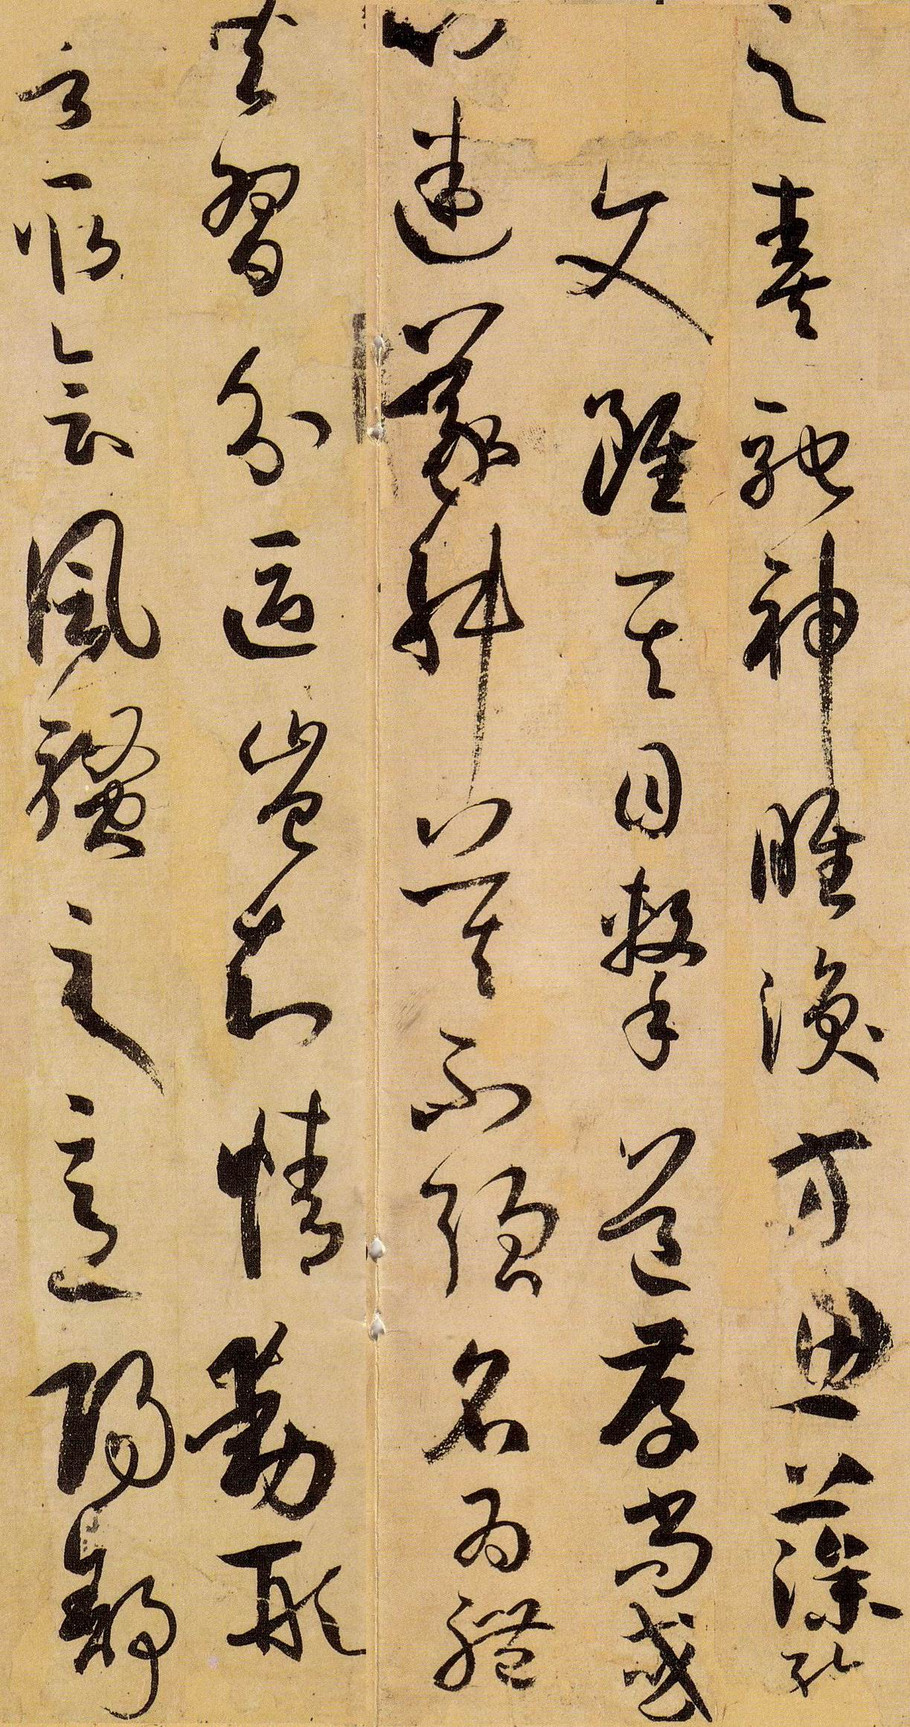 之奏馳神睢渙方思藻
文雖其目擊道存尚或
心迷義舛莫不強名為體
共習分區豈知情動形
言取會風騷之意陽舒